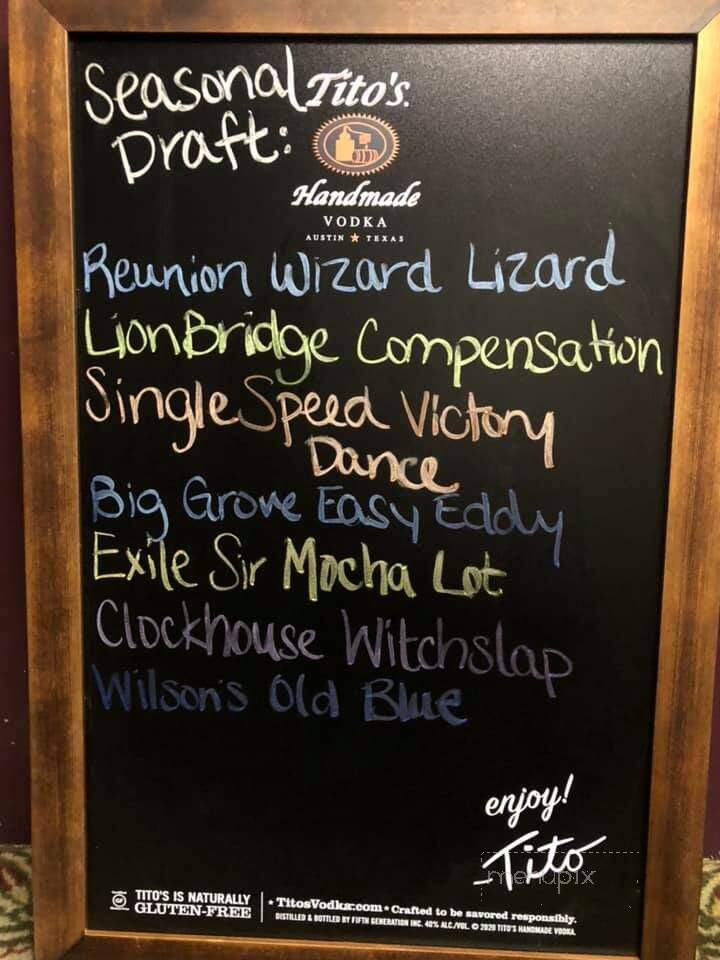 Seasonal
Draft:
Tito's.
Handmade
VODKA
AUSTIN ★ TEXAS
Reunion Wizard Lizard
LionBridge Compensation
SingleSpeed Victory
Dance
Big Grove Easy Eddy
Exile Sir Mocha Lot
Clockhouse Witchslap
Wilson's Old Blue
enjoy!
Tito
menupix
GF
TITO'S IS NATURALLY
GLUTEN-FREE
• TitosVodka.com • Crafted to be savored responsibly.
DISTILLED & BOTTLED BY FIFTH GENERATION INC. 40% ALC./VOL. © 2020 TITO'S HANDMADE VODKA.